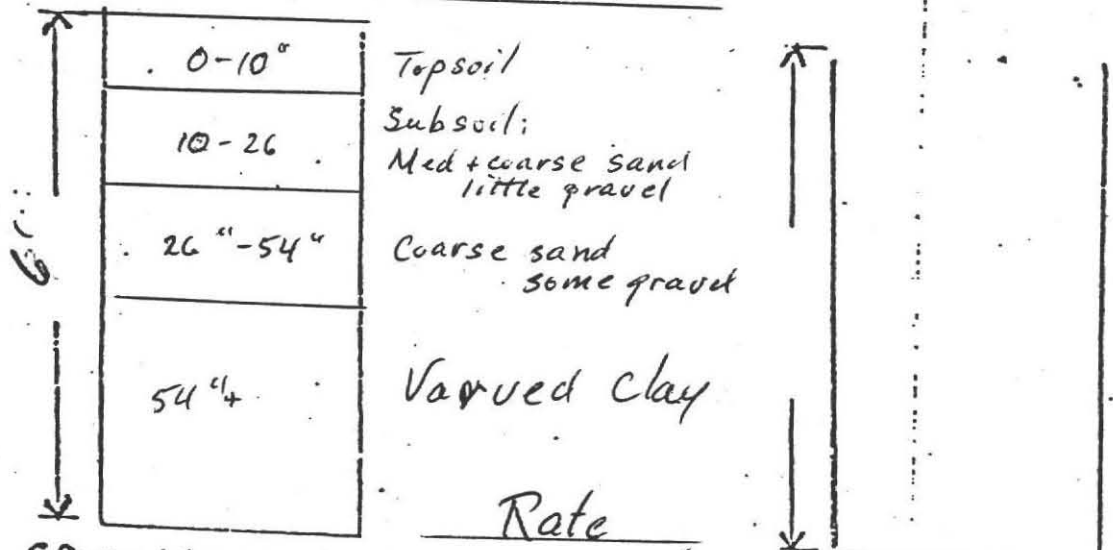 0-10"
Topsoil
10-26
Subsoil:
Med + coarse sand
little gravel
26"-54"
Coarse sand
some gravel
54"+
Varved Clay
Rate